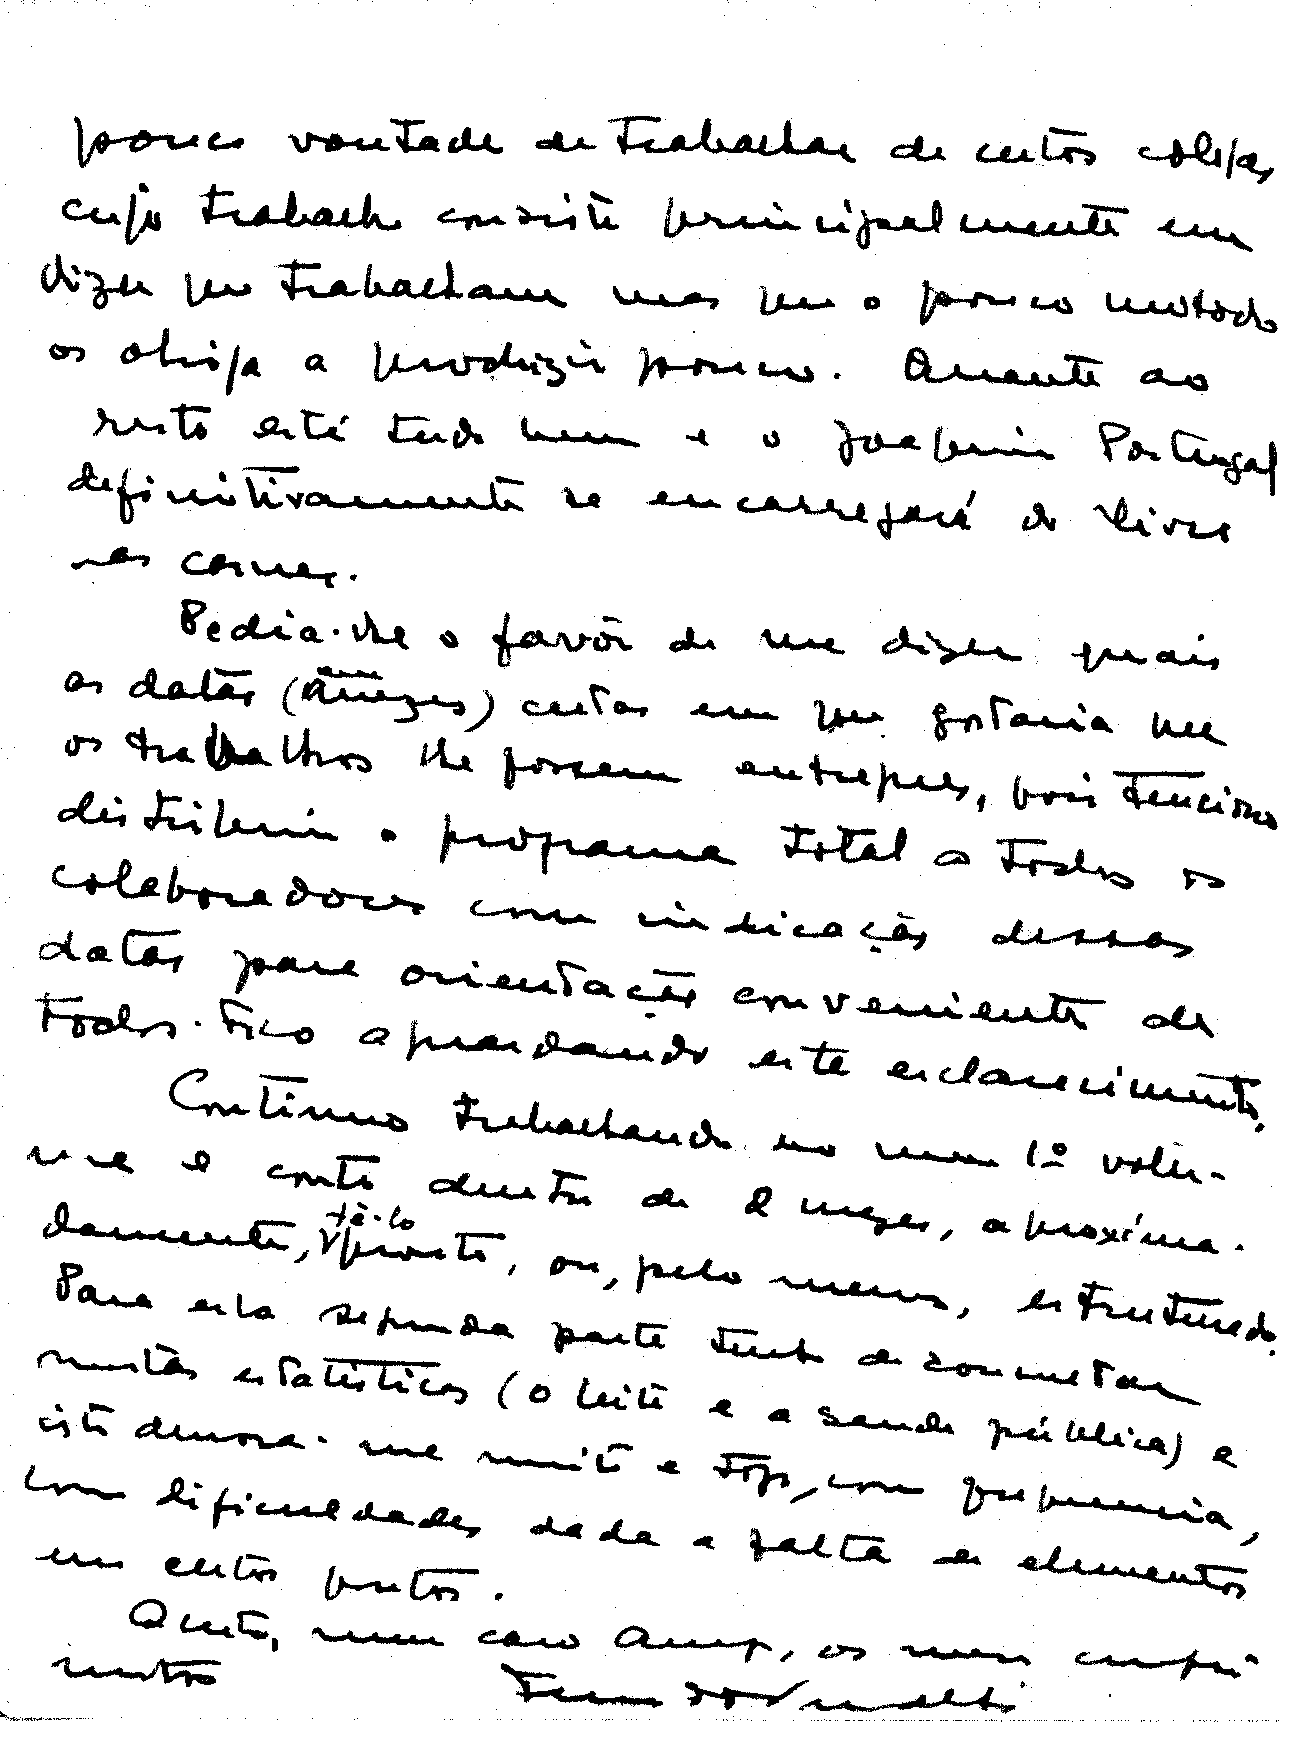 pouca vontade de trabalhar de certos colegas
cujo trabalho consiste principalmente em
dizer que trabalham mas que o pouco metodo
os obriga a produzir pouco. Quanto ao
resto está tudo bem e o Joaquim Portugal
definitivamente se encarregará do livro
das carnes.
Pedia-lhe o favôr de me dizer quais
as datas (mezes) certas em que gostaria que
os trabalhos lhe fossem entregues, pois tenciono
distribuir o programa total a todos os
colaboradores com indicação dessas
datas para orientação conveniente de
todos. Fico aguardando este esclarecimento.
Continuo trabalhando no meu 1º volu-
me e conto dentro de 2 mezes, aproxima-
damente, tê-lo pronto, ou, pelo menos, estruturado.
Para esta segunda parte tenho de consultar
muitas estatísticas (o leite e a saude pública) e
isto demora-me muito e topo, com frequencia,
com dificuldades dada a falta de elementos
em certos pontos.
Aceite, meu caro Amigo, os meus cumpri-
mentos